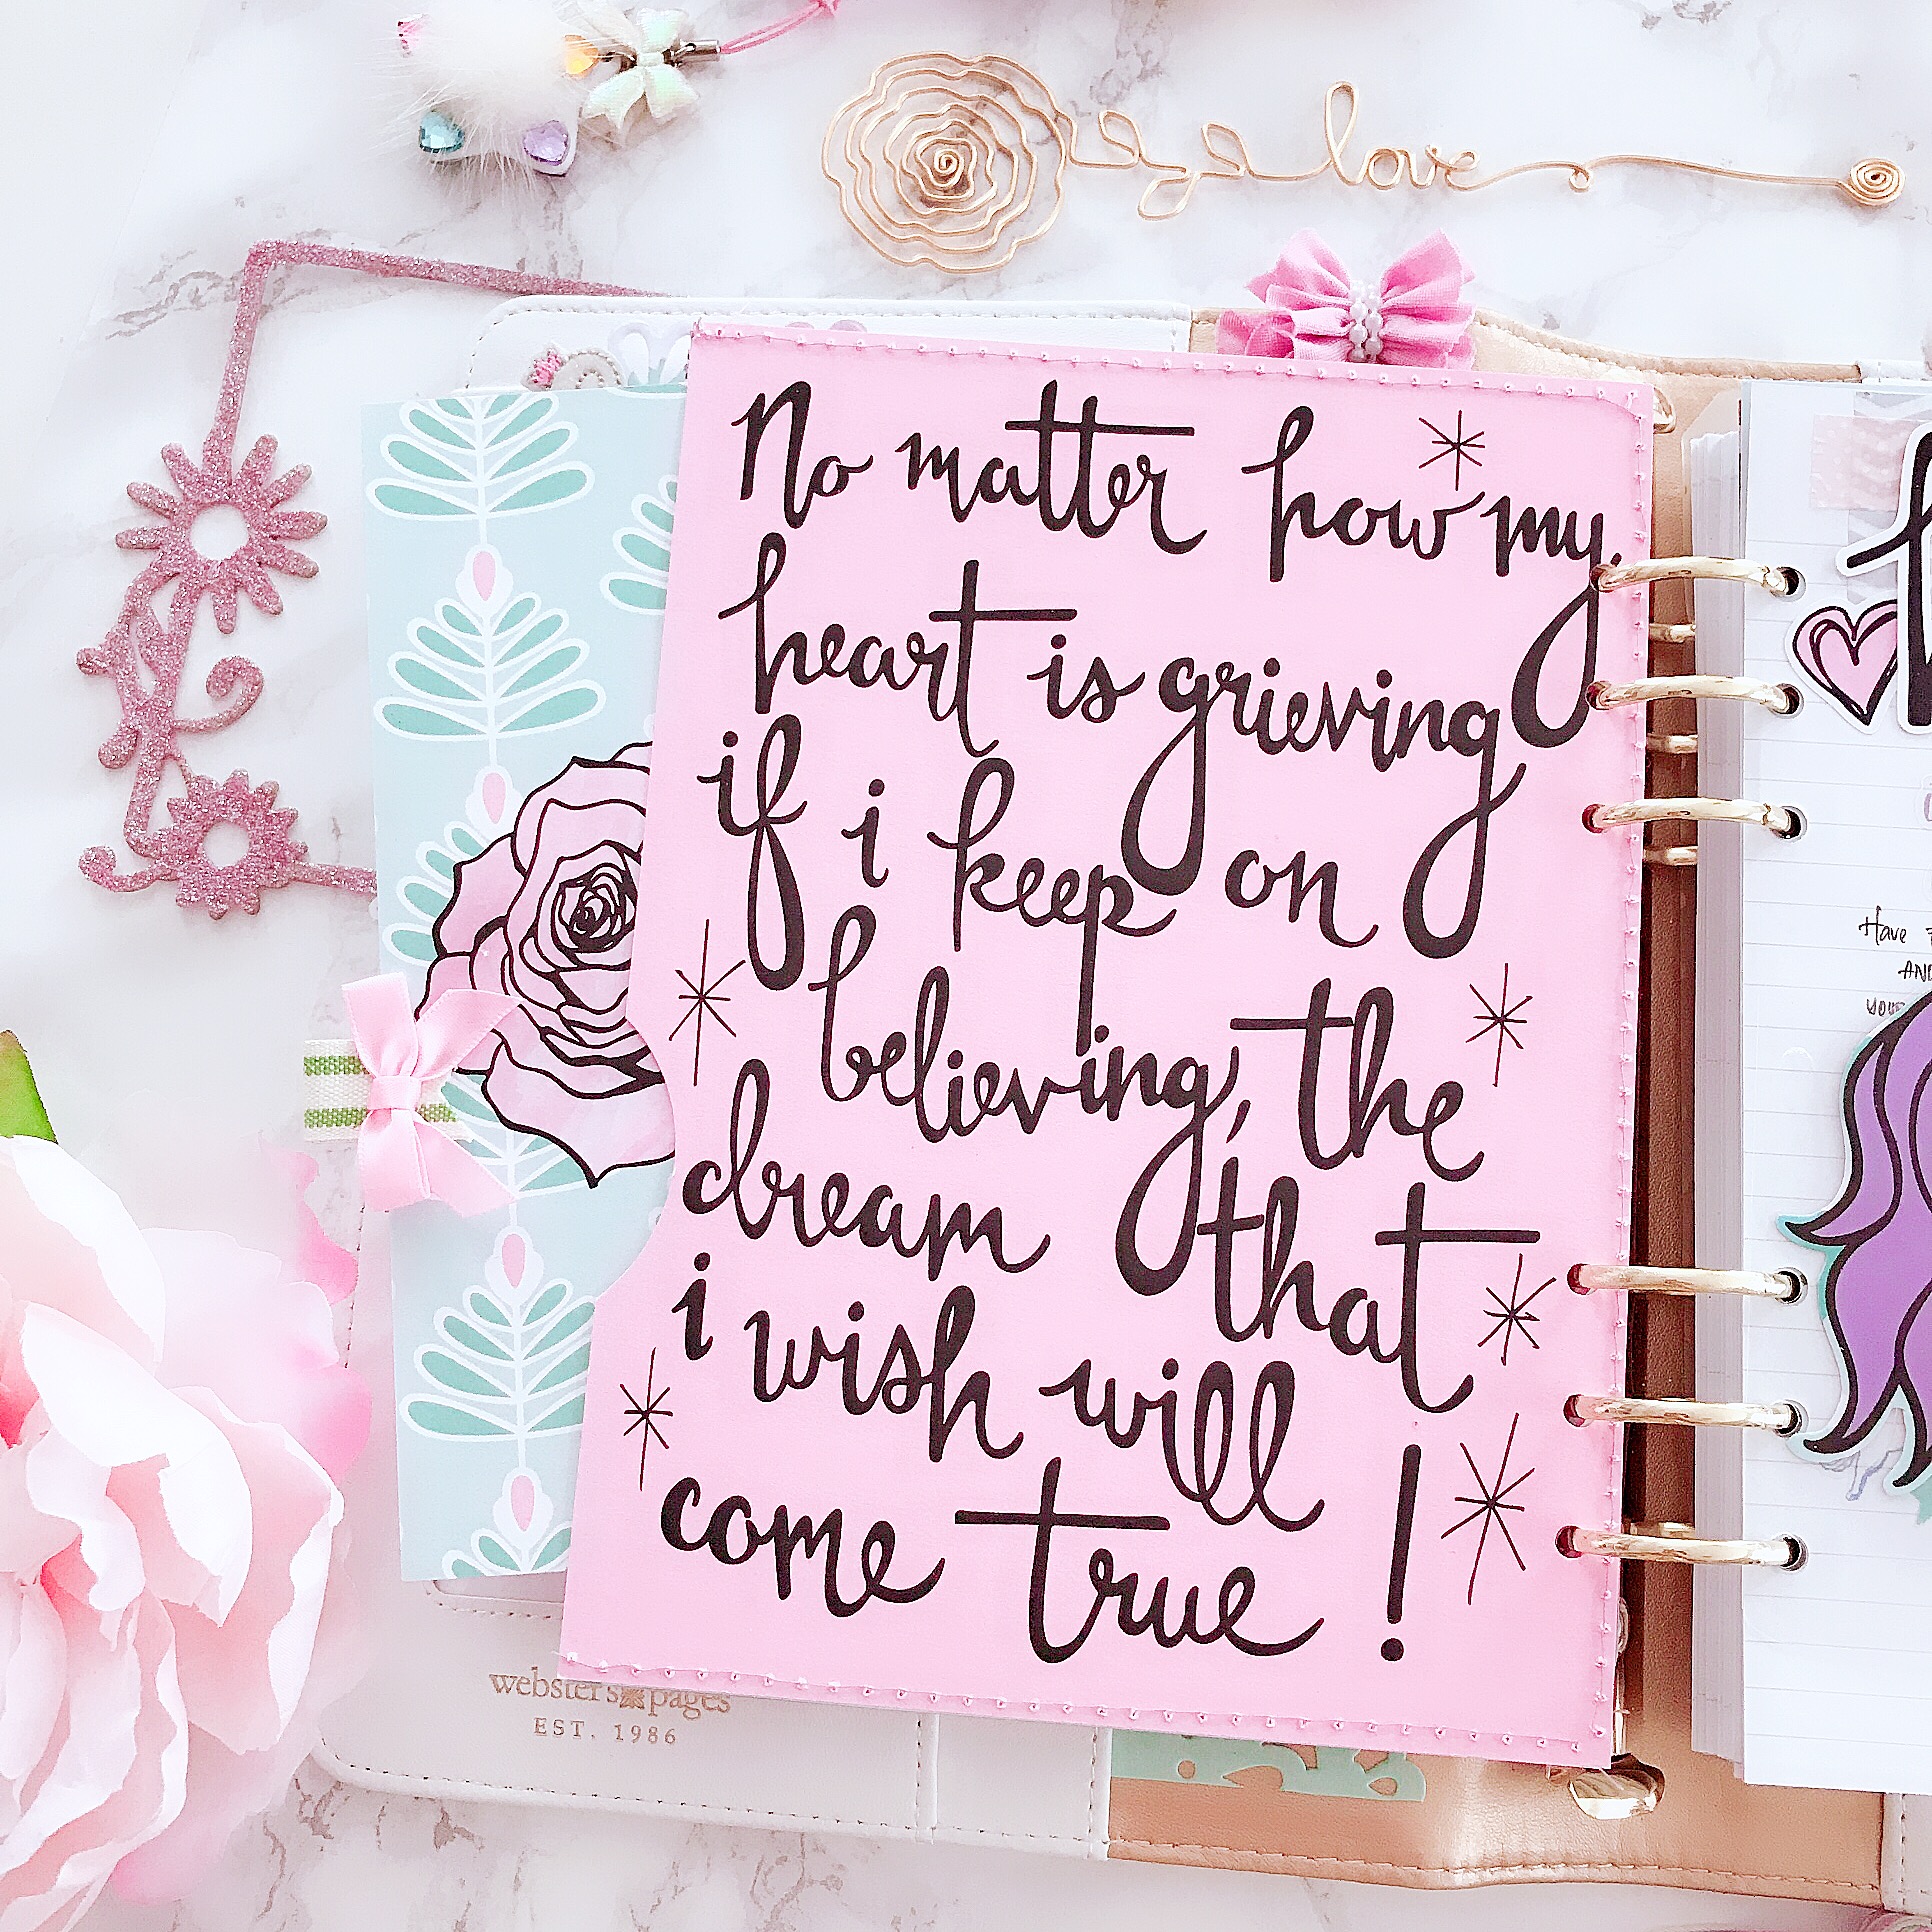 love
No matter how my
heart is grieving
if i keep on
believing, the
dream that
i wish will
come true!
Have
AND
YOUR
webster's pages
EST. 1986